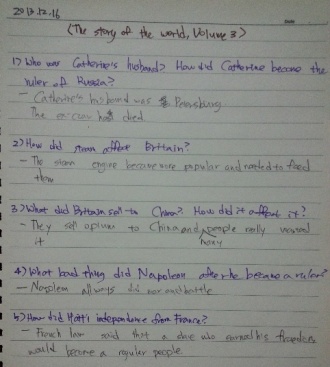 2013.12.16
(The story of the world, Volume 3)
1) Who was Catherine's husband? How did Catherine become the
ruler of Russia?
- Catherine's husband was Petersburg
The ex-czar had died
2) How did steam affect Britain?
- The steam engine became more popular and needed to feed
them
3) What did Britain sell to China? How did it affect it?
- They sell opium to China and many people really wanted
it
4) What bad thing did Napoleon after he became a ruler?
- Napoleon always did war and battle
5) How did Haiti independence from France?
- French law said that a slave who earned his freedom
would become a regular people